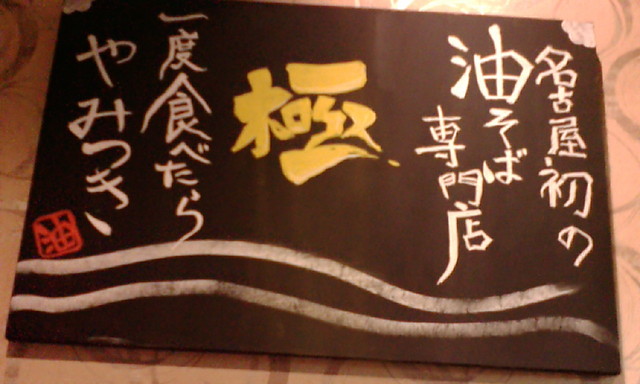 名古屋初の
油そば
専門店
極
一度食べたら
やみつき、
油